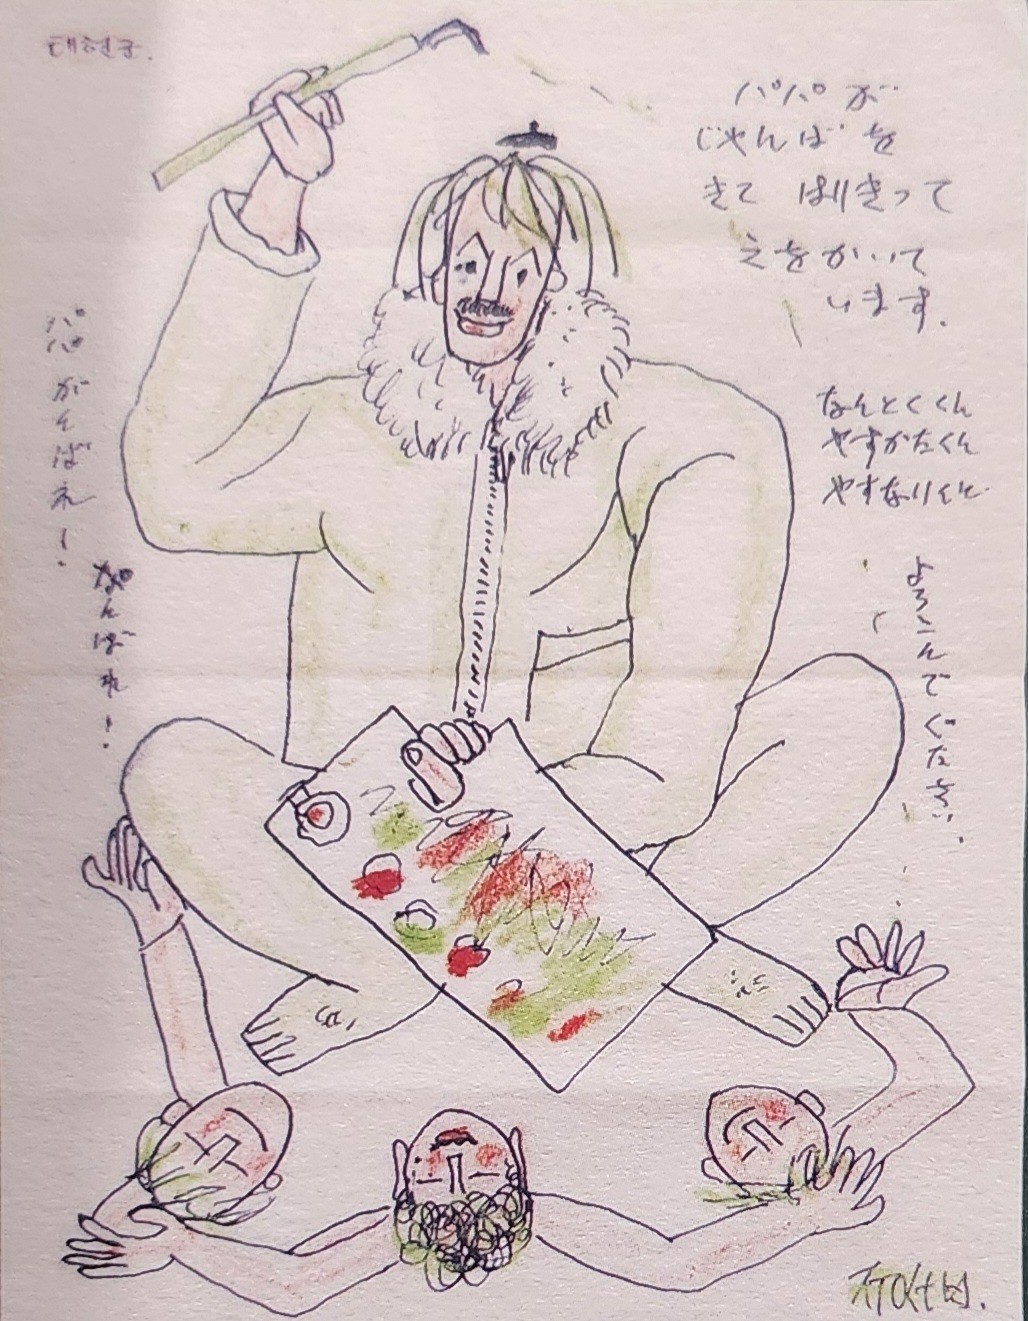 태현군.
パパが
じゃんばを
きて はりきって
えをかいて
います.
なんとくくん
やすかたくん
やすなりくん
よろこんでください.
パパがんばれ!
がんばれ!